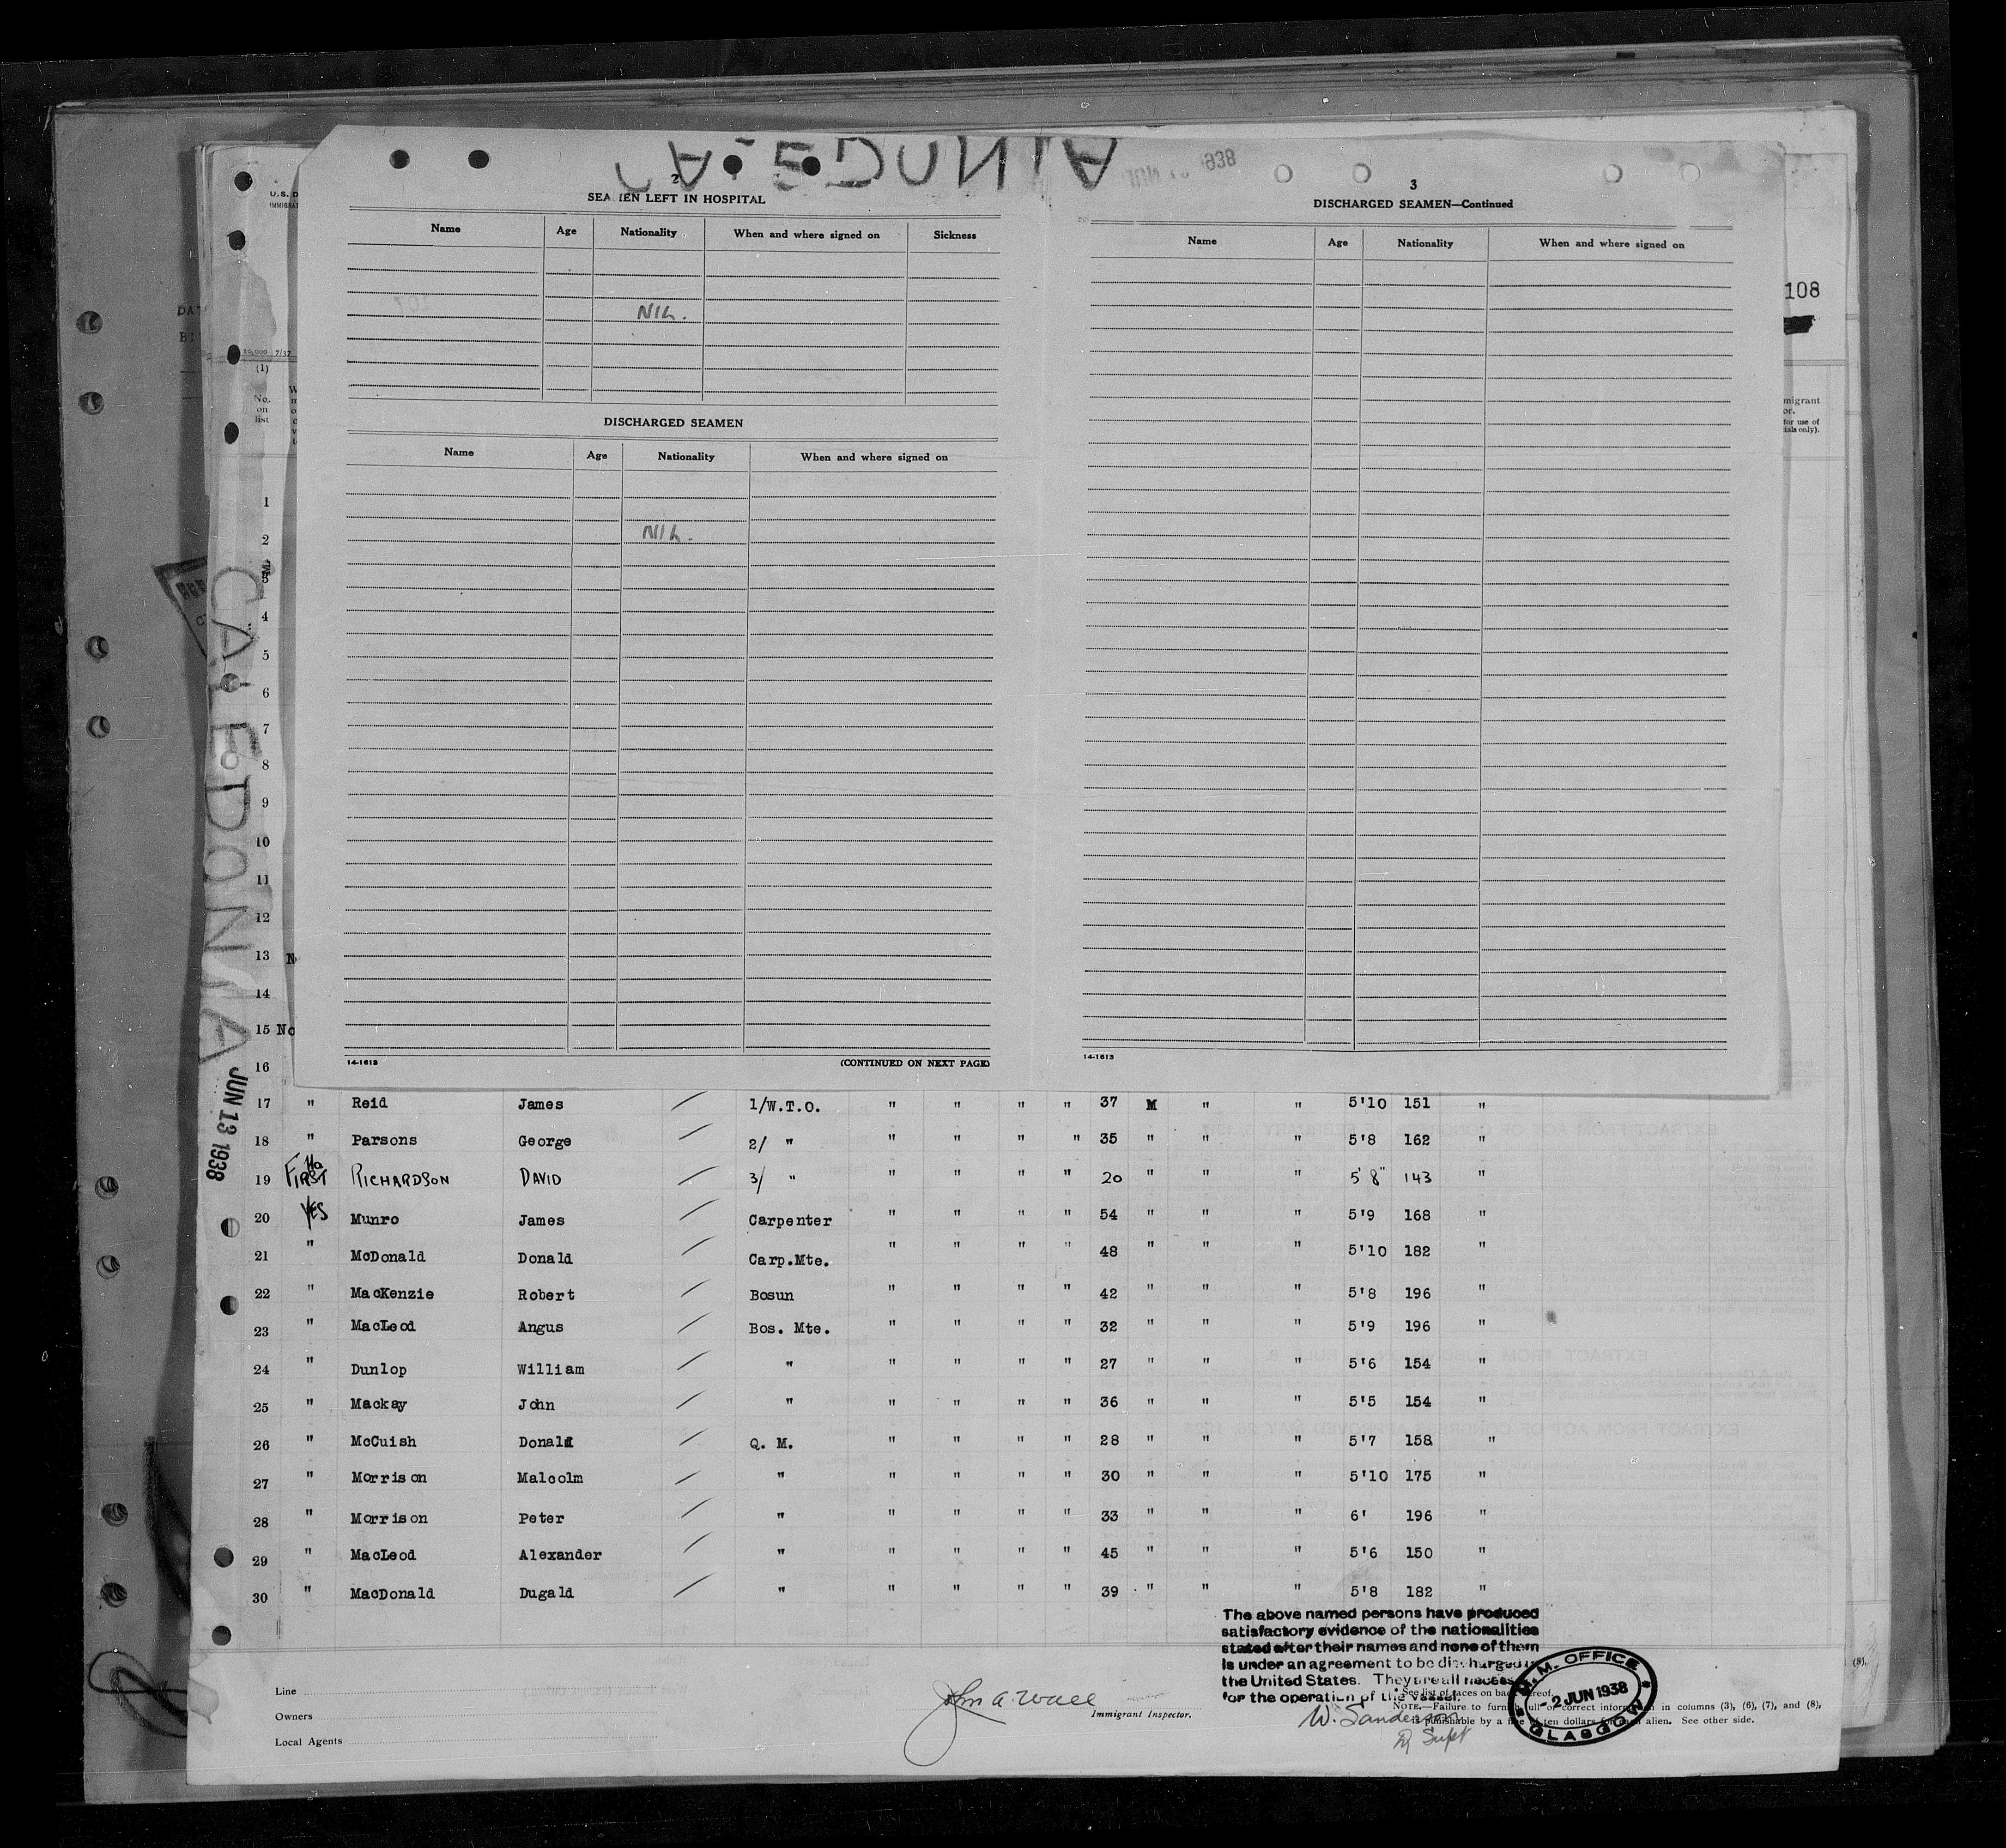 CALEDONIA
2
SEAMEN LEFT IN HOSPITAL
Name Age Nationality When and where signed on Sickness
NIL.
DISCHARGED SEAMEN
Name Age Nationality When and where signed on
NIL.
14-1613 (CONTINUED ON NEXT PAGE)
1938
3
DISCHARGED SEAMEN—Continued
Name Age Nationality When and where signed on
14-1613
108
migrant
or.
for use of
ials only).
U.S. D
IMMIGRAT
DAT
10,000 7/37
(1)
No.
on
list
CALEDONIA
JUN 13 1938
1
2
3
4
5
6
7
8
9
10
11
12
13 N
14
15 No
16
17 " Reid James / 1/W.T.O. " " " " 37 M " " 5'10 151 "
18 " Parsons George / 2/ " " " " " 35 " " " 5'8 162 "
19 FIRST RICHARDSON DAVID / 3/ " " " " " 20 " " " 5'8" 143 "
20 YES Munro James / Carpenter " " " " 54 " " " 5'9 168 "
21 " McDonald Donald / Carp.Mte. " " " " 48 " " " 5'10 182 "
22 " MacKenzie Robert / Bosun " " " " 42 " " " 5'8 196 "
23 " MacLeod Angus / Bos. Mte. " " " " 32 " " " 5'9 196 "
24 " Dunlop William / " " " " " 27 " " " 5'6 154 "
25 " Mackay John / " " " " " 36 " " " 5'5 154 "
26 " McCuish Donald / Q. M. " " " " 28 " " " 5'7 158 "
27 " Morrison Malcolm / " " " " " 30 " " " 5'10 175 "
28 " Morrison Peter / " " " " " 33 " " " 6' 196 "
29 " MacLeod Alexander / " " " " " 45 " " " 5'6 150 "
30 " MacDonald Dugald / " " " " " 39 " " " 5'8 182 "
The above named persons have produced
satisfactory evidence of the nationalities
stated after their names and none of them
is under an agreement to be discharged in
the United States. They are all necess
for the operation of the vessel.
W. Sanderson
Dy Supt
M.M. OFFICE
- 2 JUN 1938
GLASGOW
Line
Owners
Local Agents
John A. Wall
Immigrant Inspector.
* See list of races on back hereof.
NOTE.—Failure to furnish full or correct information in columns (3), (6), (7), and (8),
is punishable by a fine of ten dollars for each alien. See other side.
(8),